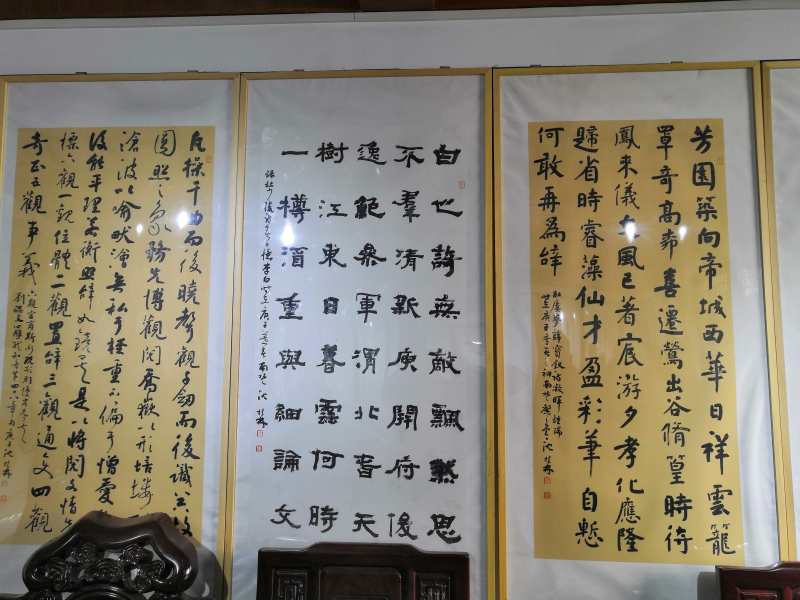 芳园築向帝城西華日祥雲籠
罩奇高柳喜遷鶯出谷脩篁時待
鳳來儀文風已著宸游夕孝化應隆
歸省時睿藻仙才盈彩筆自慙
何敢再為辭
紅樓夢薛寶釵詩凝暉鍾瑞
白也詩無敵飄然思
不羣清新庾開府俊
逸鮑參軍渭北春天
樹江東日暮雲何時
一樽酒重與細論文
凡操千曲而後曉聲觀千劍而後識器故
圓照之象務先博觀閱喬嶽以形培塿
滄波以喻畎澮無私於輕重不偏于憎愛
後能平理若衡照辭如鏡矣是以將閱文情先
標六觀一觀位體二觀置辭三觀通變四觀
奇正五觀事義
六觀宮商斯術既形則優劣見矣